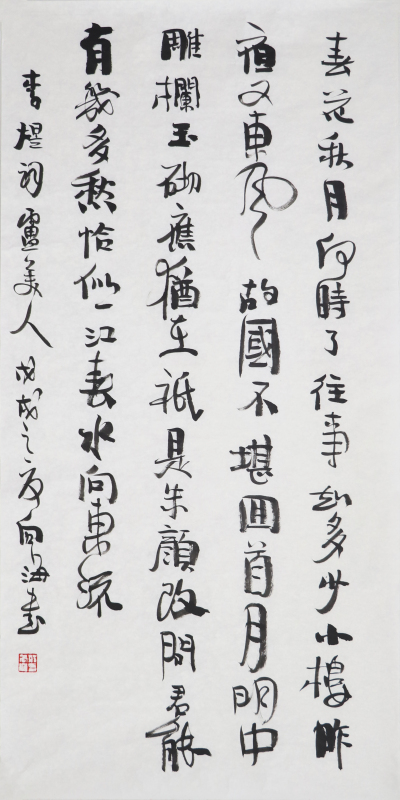 春花秋月何時了往事知多少小樓昨
夜又東風故國不堪回首月明中
雕欄玉砌應猶在祇是朱顏改問君能
有幾多愁恰似一江春水向東流
李煜詞虞美人戊戌之夏向海書